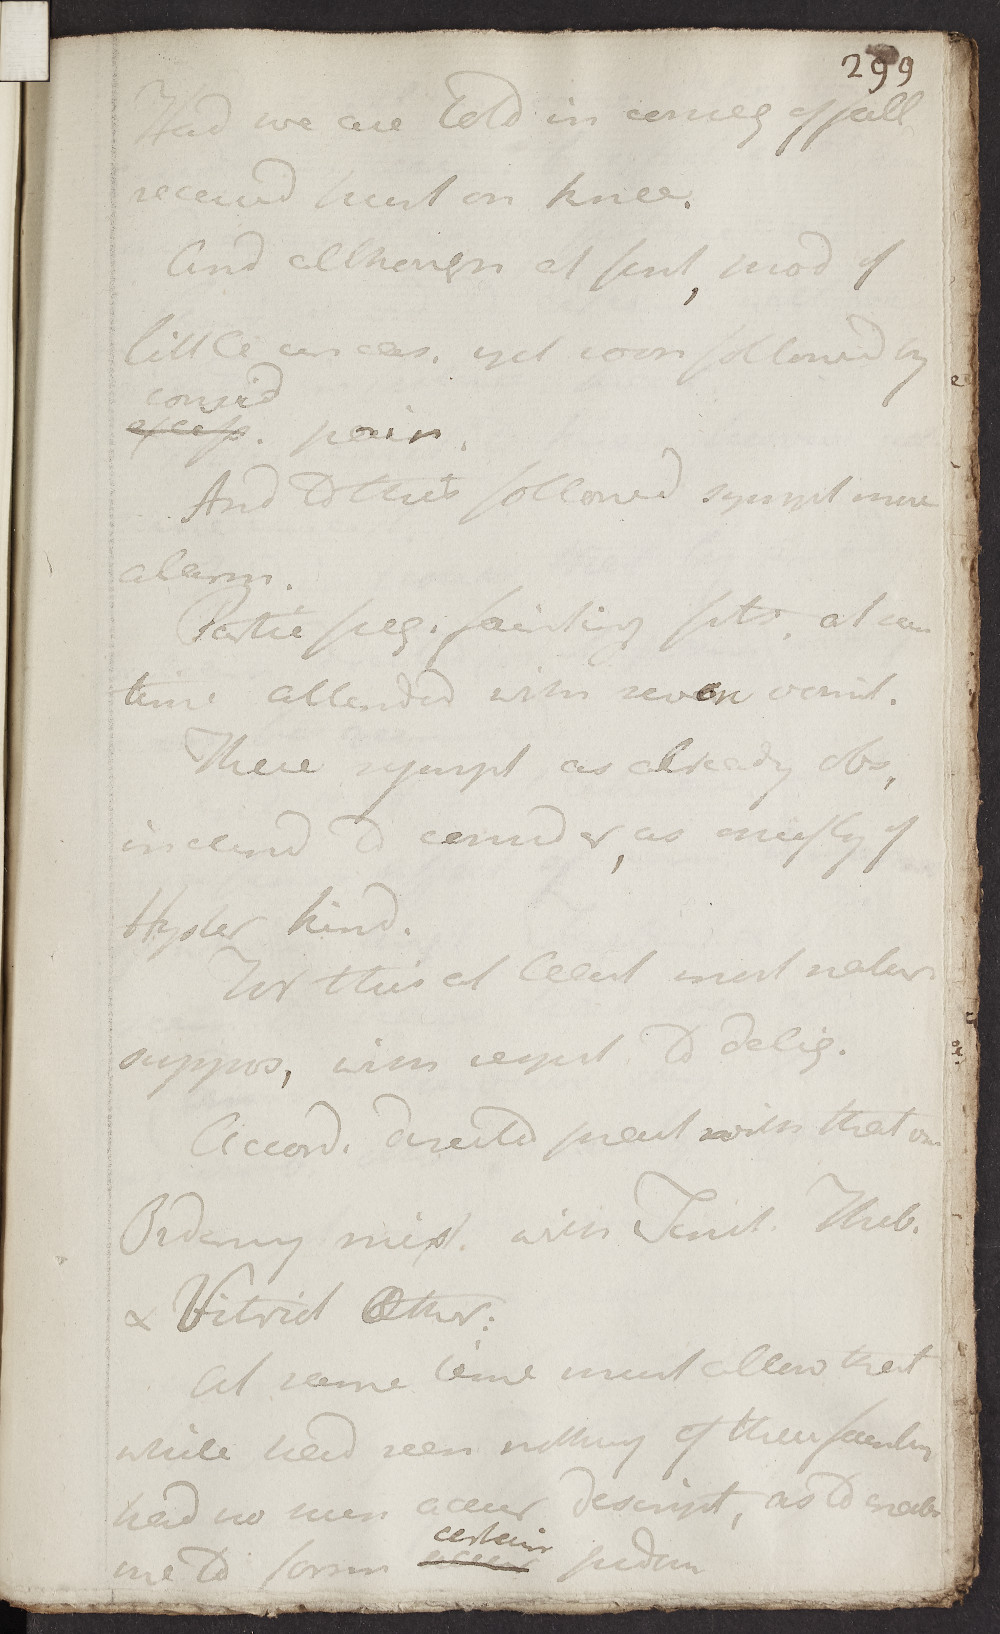 299
Had we are told in conseq of fall
received hurt on knee.
And although at first, prod of
little uneas. yet soon followed by
consid
excess. pain.
And to this followed sympt more
alarm.
Partic freq. fainting fits, at same
time attended with seven vomit.
These sympt as already obs,
inclind to consider, as chiefly of
Hyster kind.
For this at least most natur
suppos, with respect to delig.
Accord. directed pneut with that our
Ordinary mixt. with Tinct. Theb.
& Vitriol Æther:
At same time must allow that
while had seen nothing of these fainting
had no such accur descript, as to enable
certain
me to form accur judgm